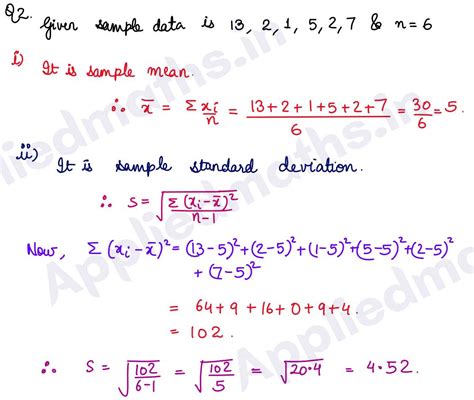 Q2. Given sample data is 13, 2, 1, 5, 2, 7 & n = 6
i) It is sample mean.
∴ x̄ = Σ xi/n = (13+2+1+5+2+7)/6 = 30/6 = 5
ii) It is sample standard deviation.
∴ S = √(Σ(xi-x̄)²/(n-1))
Now, Σ(xi-x̄)² = (13-5)²+(2-5)²+(1-5)²+(5-5)²+(2-5)²
+ (7-5)²
= 64+9+16+0+9+4
= 102.
∴ S = √(102/(6-1)) = √(102/5) = √20.4 = 4.52.
Appliedmaths.in
Appliedmaths.in
Appliedmaths.in